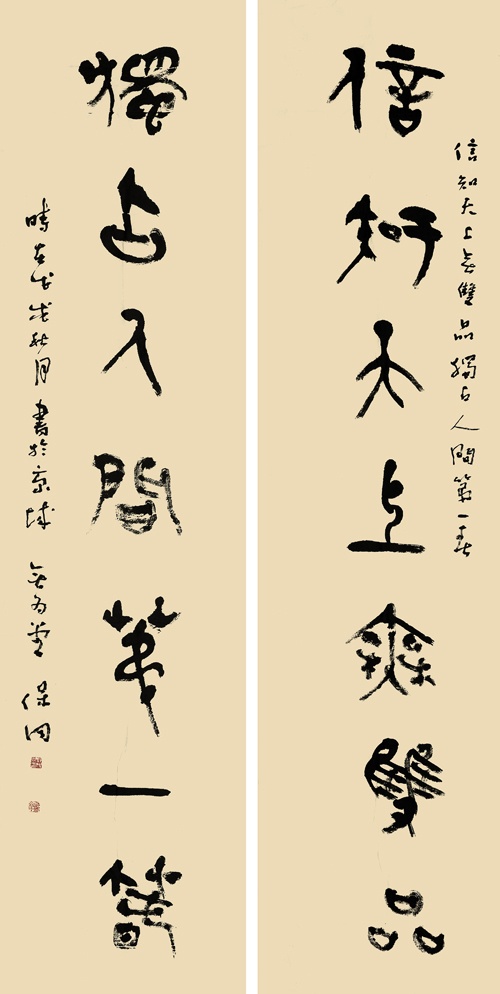 信知天上無雙品獨占人間第一春
信知天上無雙品
獨占人間第一春
時在戊戌秋月書於京城無為堂保同